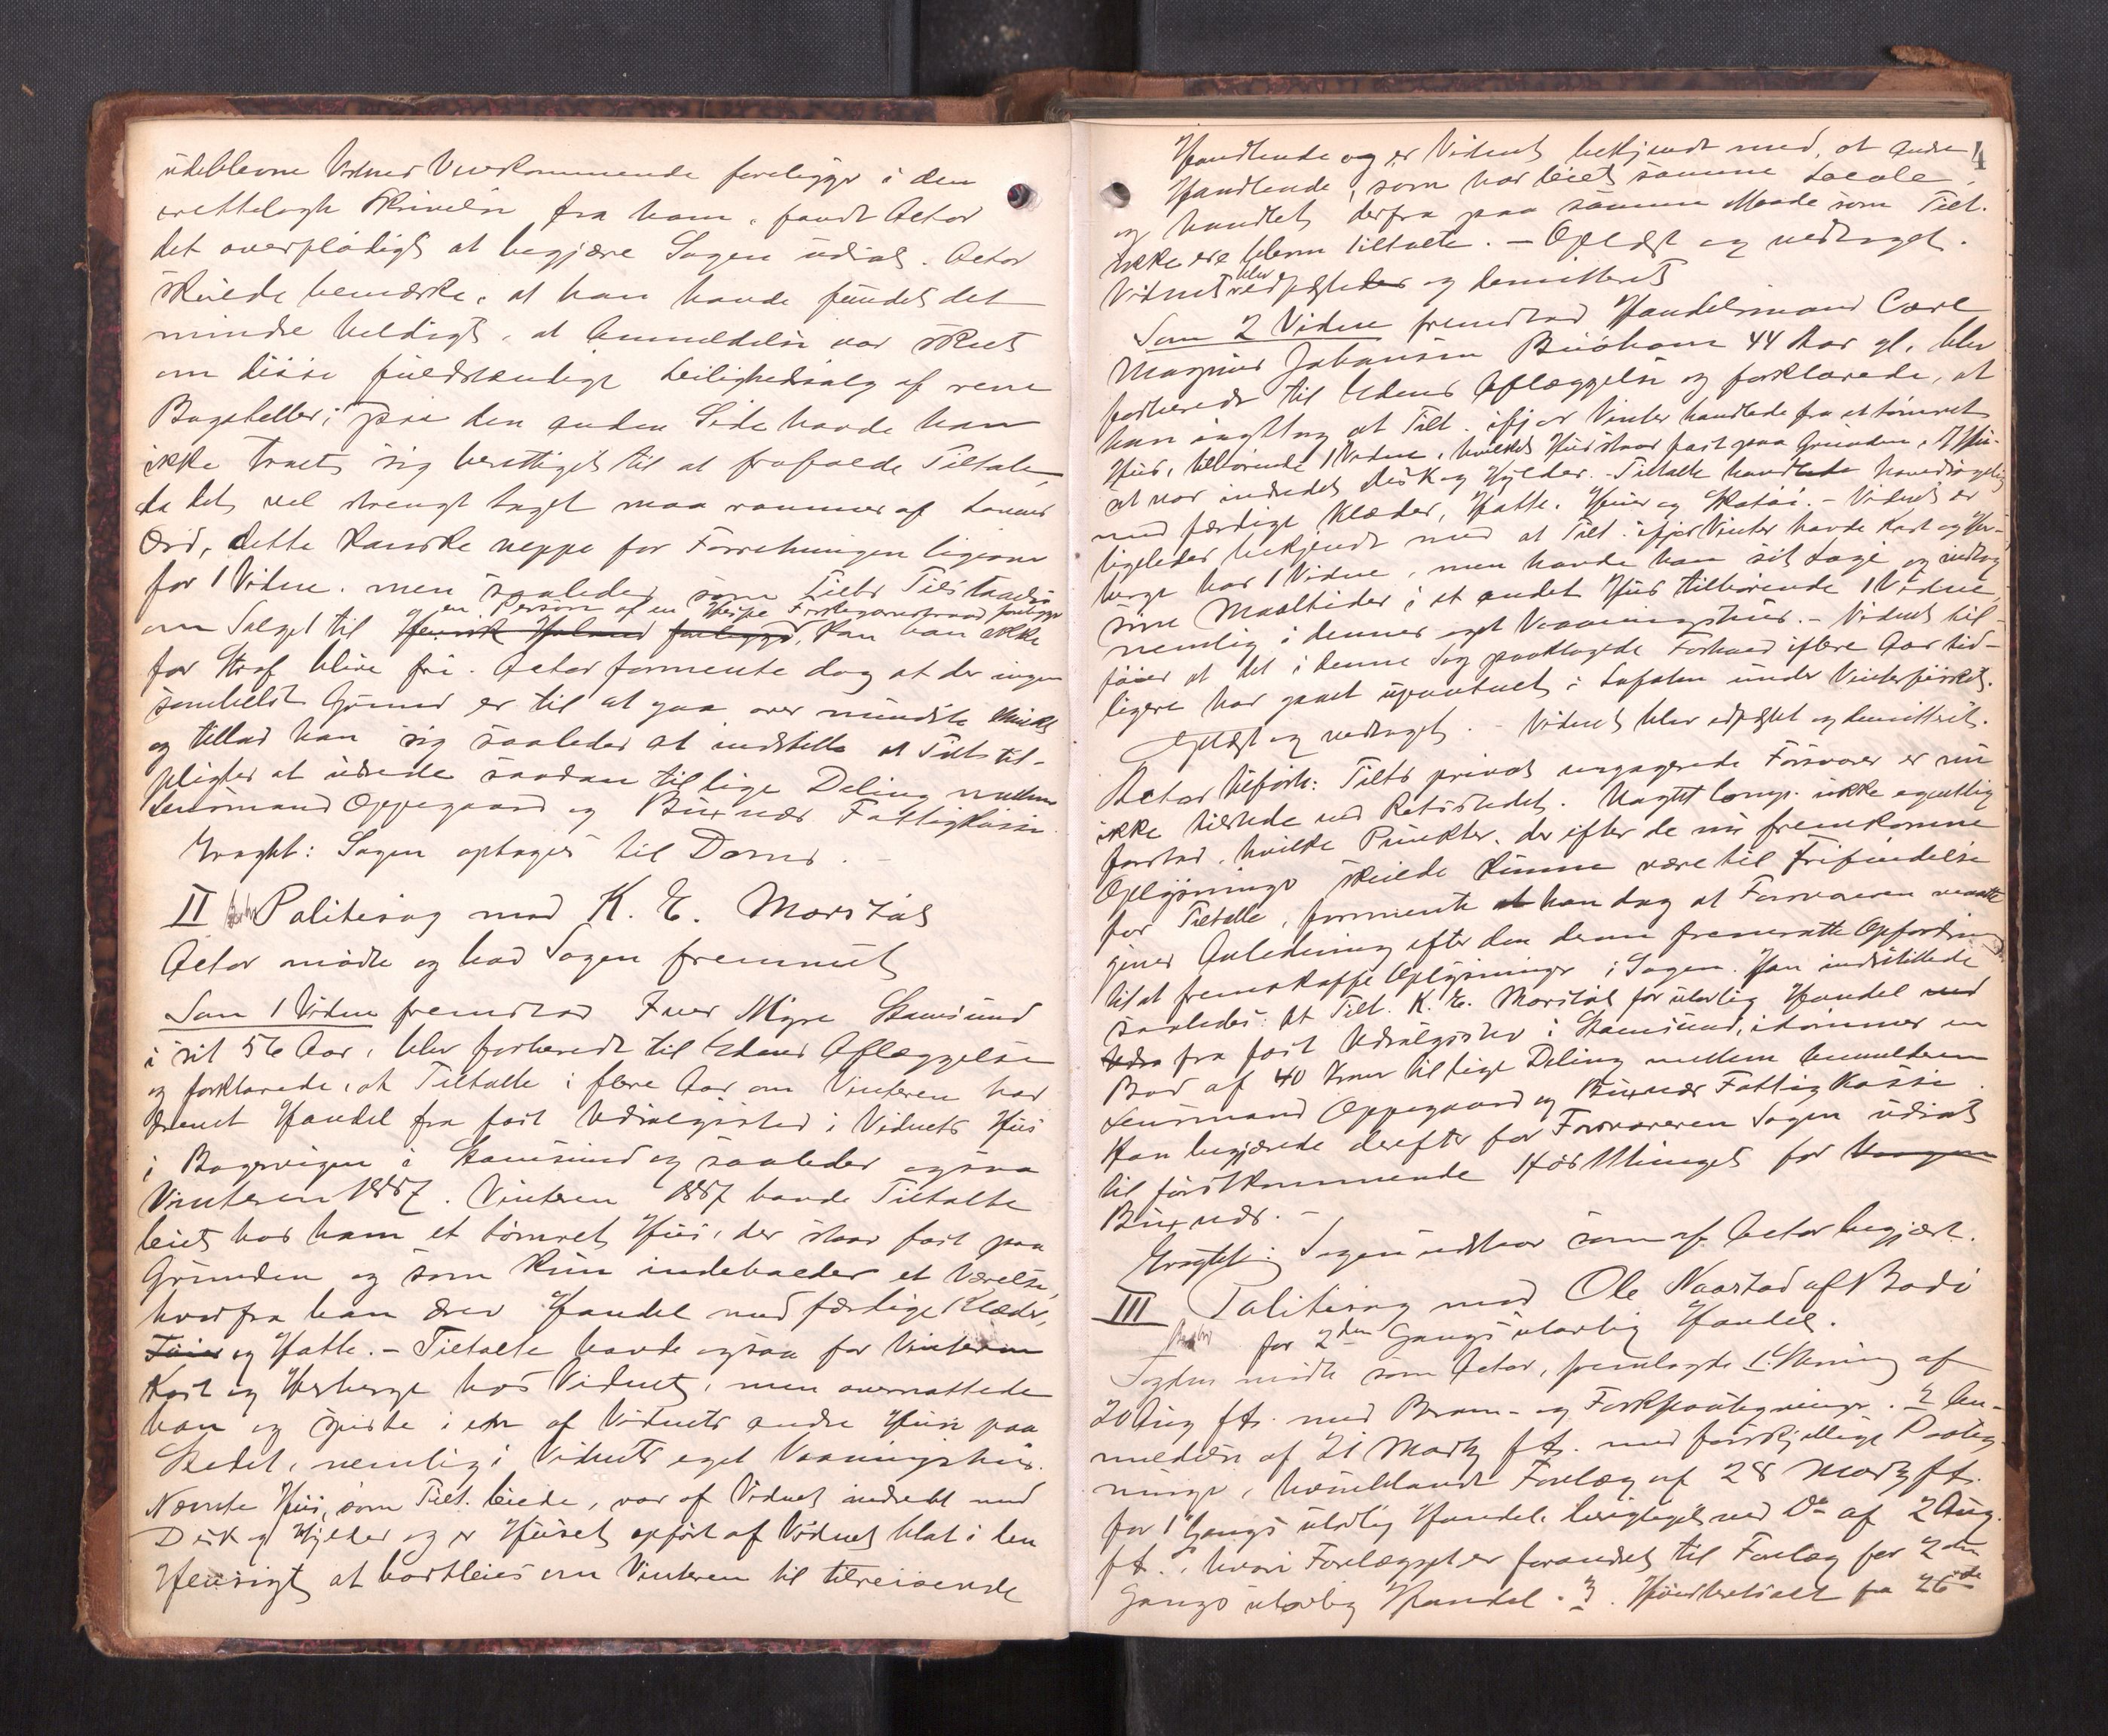 udeblevne Vidnes Vedkommende foreligger i den
retteslagte Skrivelse fra ham, fandt Actor
det overflødigt at begjære Sagen udsat. Actor
skulde bemærke, at han havde fundet det
mindre heldigt, at Anmeldelse var skeet
om disse fuldstændige Leilighedssalg af rene
Bagateller; paa den anden Side havde han
ikke troet sig berettiget til at frafalde Tiltale,
da det vel strengt taget maa rammes af Lovens
Ord, dette kanske neppe for Forretningen ligeoverfor
for 1 Vidne. men saaledes som Tiltes Tilstaaelse
om Salget til Henrik Holand foreligger, kan han ikke
en Person af en Fiskeværstand foreligger
for Straf blive fri. Actor formente dog at der ingen
somhelst Grund er til at gaa over mindste Mulkt
og tillod han sig saaledes at indstille at Tilt. til-
pligtes at udrede saadan til lige Deling mellem
Lensmand Oppegaard og Buxnæs Fattigkasse.
Eragt: Sagen optages til Doms. –
II Politisag mod K. E. Morstøl
Actor mødte og bad Sagen fremmet
Som 1 Vidne fremstod Iver Myre Stamsund
i sit 56 Aar, blev forberedt til Edens Aflæggelse
og forklarede, at Tiltalte i flere Aar om Vinteren har
drevet Handel fra fast Udsalgssted i Vidnets Hus
i Bogsvigen i Stamsund og saaledes ogsaa
Vinteren 1887. Vinteren 1887 havde Tiltalte
leiet hos ham et tømret Hus, der staar fast paa
Grunden og som kun indeholder et Værelse,
hvorfra han drev Handel med færdige Klæder,
Tøier og Hatte. – Tiltalte havde ogsaa for Vinteren
Kost og Herberge hos Vidnet, men overnattede
han og spiste i et af Vidnets andre Huse paa
Stedet, nemlig i Vidnets eget Vaaningshus.
Nævnte Hus, som Tilt. leiede, var af Vidnet indredt med
Disk og Hylder og er Huset opført af Vidnet blot i den
Hensigt at bortleies om Vinteren til tilreisende
4
Handlende og er Vidnet bekjendt med, at andre
Handlende, som har leiet samme Locale
og handlet derfra paa samme Maade som Tilt.
ikke ere blevne tiltalte. – Oplæst og vedtaget.
Vidnet blev edfæstedes og demitteret
Som 2 Vidne fremstod Handelsmand Carl
Magnus Johansen Buøhavn 44 Aar gl. blev
forberedt til Edens Aflæggelse og forklarede, at
han iagttog at Tilt. ifjor Vinter handlede fra et tømret
Hus, tilhørende 1 Vidne, hvilket Hus staar fast paa Grunden. I Hu-
set var indredet Disk og Hylder. – Tiltalte handlede hovedsagelig
med færdige Klæder, Hatte, Huer og Skotøi. – Vidnet er
ligeledes bekjendt med at Tilt. ifjor Vinter havde Kost og Her-
berge hos 1 Vidne, men havde han sit Logi og indtog
sine Maaltider i et andet Hus tilhørende 1 Vidne,
nemlig i dennes eget Vaaningshus. – Vidnet til-
føier at det i denne Sag paaklagede Forhold i flere Aar tid-
ligere har gaaet upaatalt i Lofoten under Vinterfisket.
Oplæst og vedtaget. – Vidnet blev edfæstet og demitteret.
Actor tilførte: Tilts privat engagerede Forsvarer er nu
ikke tilstede ved Retsstedet. Uagtet Comp. ikke egentlig
forstod, hvilke Punkter, der efter de nu fremkomne
Oplysninger skulde kunne være til Frifindelse
for Tiltalte, formente at han dog at Forsvareren maatte
gives Anledning efter den derom fremsatte Opfordring
til at fremskaffe Oplysninger i Sagen. Han indstillede
saaledes: At Tilt. K. E. Morstøl for ulovlig Handel ved
Uds fra fast Udsalgssted i Stamsund, idømmes en
Bod af 40 Kroner til lige Deling mellem Anmelderen
Lensmand Oppegaard og Buxnæs Fattigkasse.
Han begjærede derefter for Forsvareren Sagen udsat
til førstkommende Høstthinget for Vaagen
Buxnæs. –
Eragtet: Sagen udstaar som af Actor begjært.
III Politisag mod Ole Naastad af Bodø
for 2den Gangs ulovlig Handel.
Fogden mødte som Actor, fremlagde 1. Stevning af
20 Aug f.A. med Beram- og Forkpaategninger. 2 An-
meldelse af 21 Marts f.A. med forskjellige Paateg-
ninger, hvoriblandt Forelæg af 28 Marts f.A.
for 1 Gangs ulovlig Handel, berigtiget ved Do af 2 Aug.
f.A., hvori Forelægget er forandret til Forelæg for 2den
Gangs ulovlig Handel. 3. fra 26de